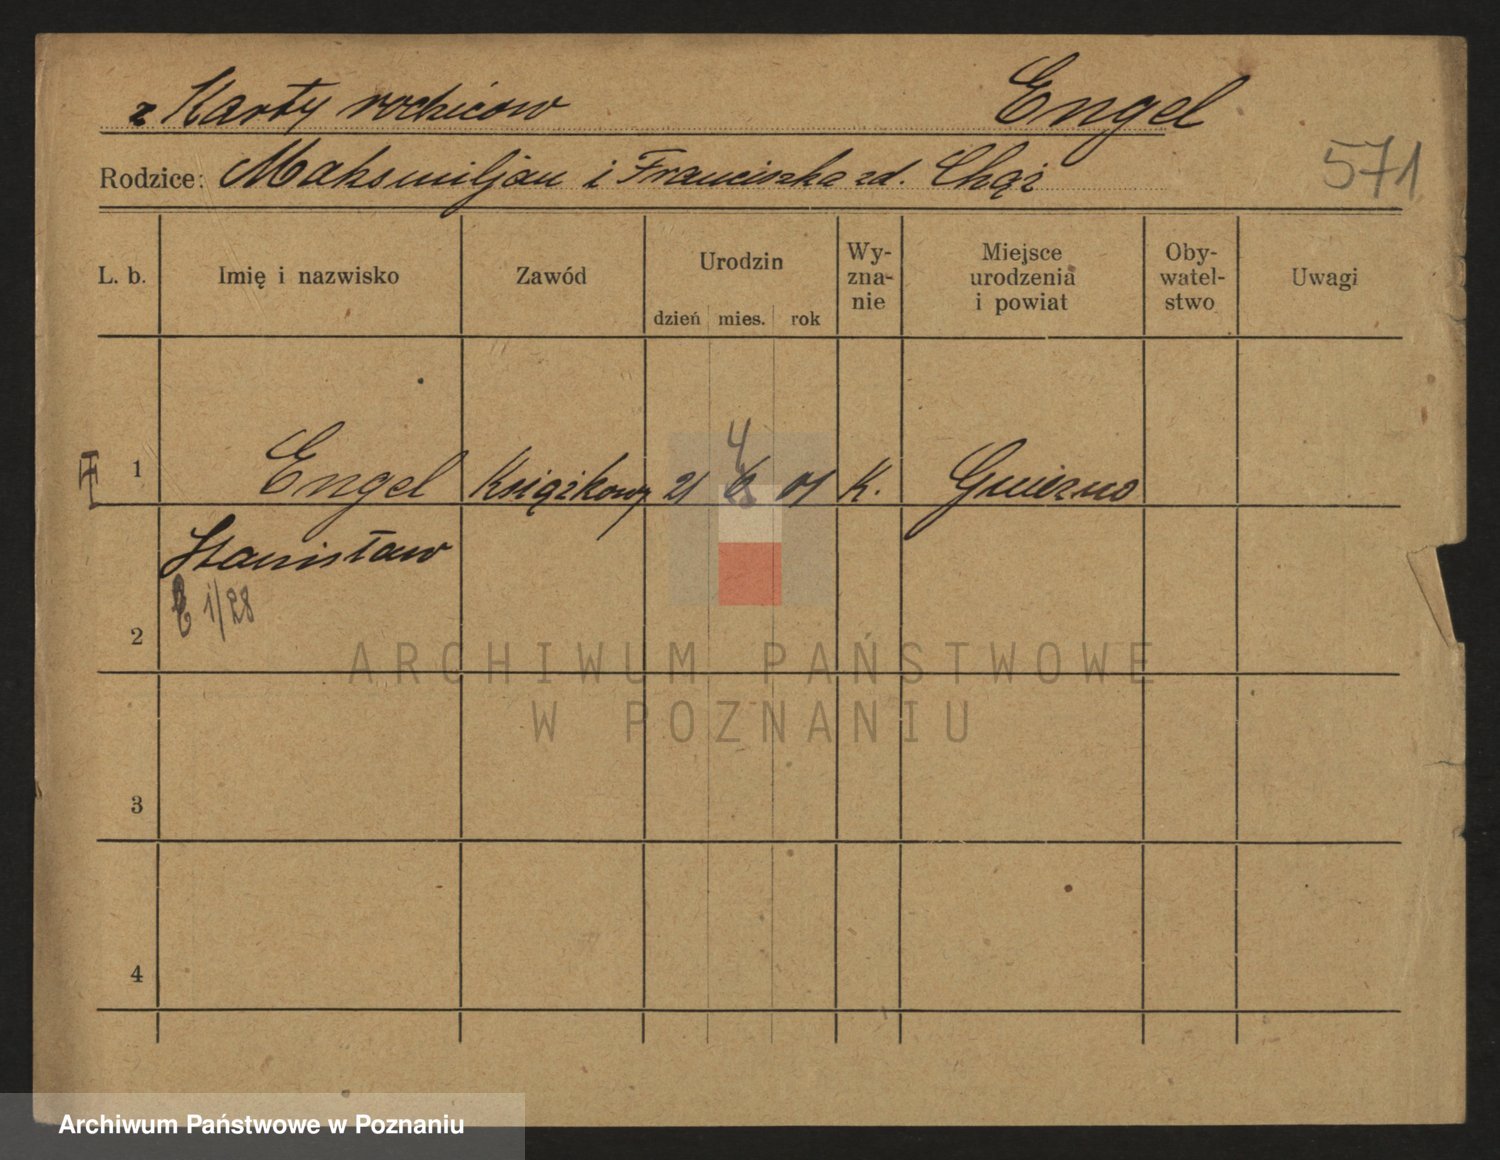 z Karty rodziców Engel
571
Rodzice: Maksmiljan i Franciszka zd. Chąż
L. b. Imię i nazwisko Zawód Urodzin dzień mies. rok Wy-zna-nie Miejsce urodzenia i powiat Oby-watel-stwo Uwagi
4
1 Engel Książkowy 21 6 01 K. Gniezno
Stanisław
1/28
2
3
4
ARCHIWUM PAŃSTWOWE
W POZNANIU
Archiwum Państwowe w Poznaniu